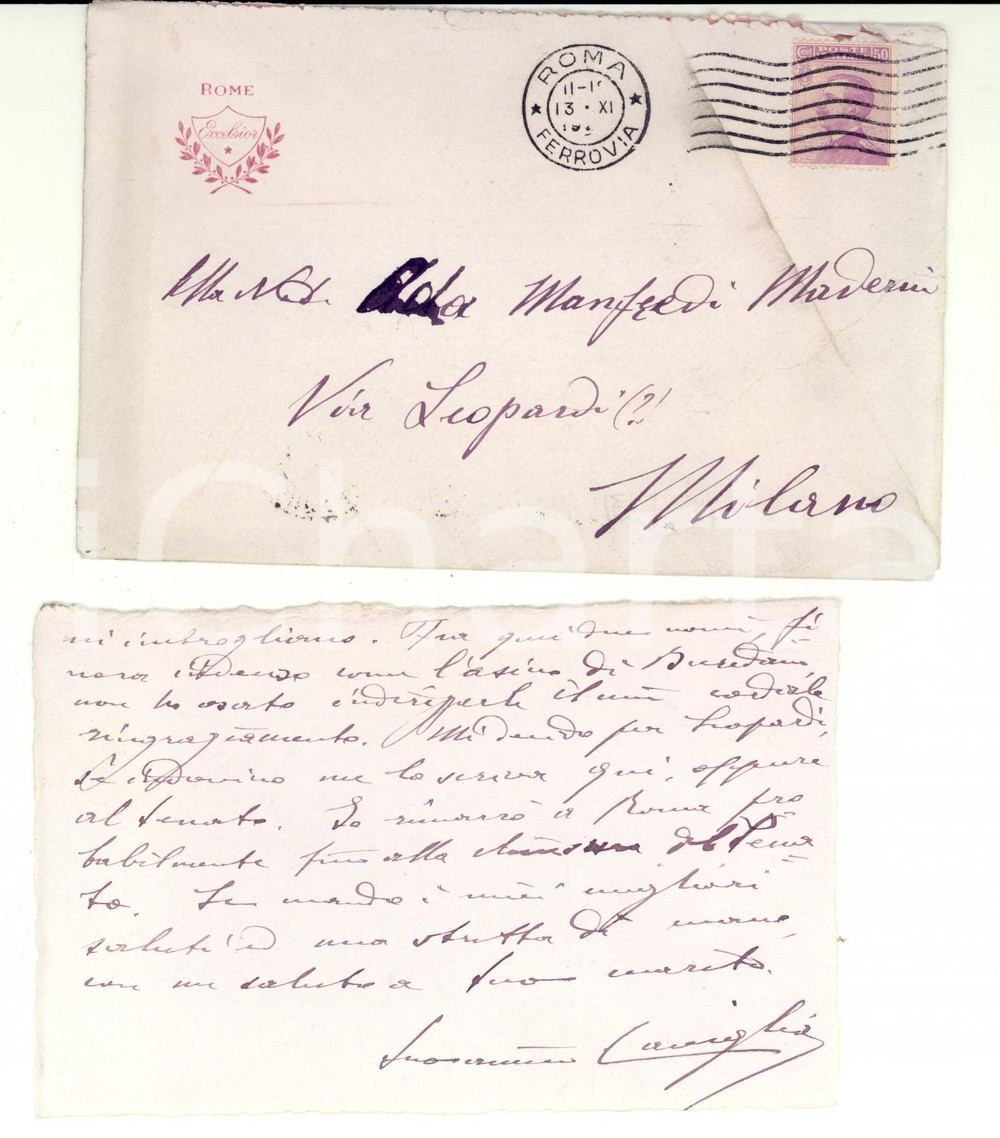 ROME
Excelsior
ROMA
13 · XI
FERROVIA
POSTE
50
Ada Manfredi Maderni
Via Leopardi (?)
Milano
iCharta
mi imbrogliano. Fra quei due nomi, fi
nora come l'asino di Buridano,
non ho osato indirizzarle il mio cordiale
ringraziamento. Mi decido per Leopardi,
Se indovino me lo scriva qui, oppure
al Senato. Io rimarrò a Roma pro
babilmente fino alla chiusura del Sena
to. Le mando i miei migliori
saluti ed una stretta di mano,
con un saluto a Suo marito.
Caviglia